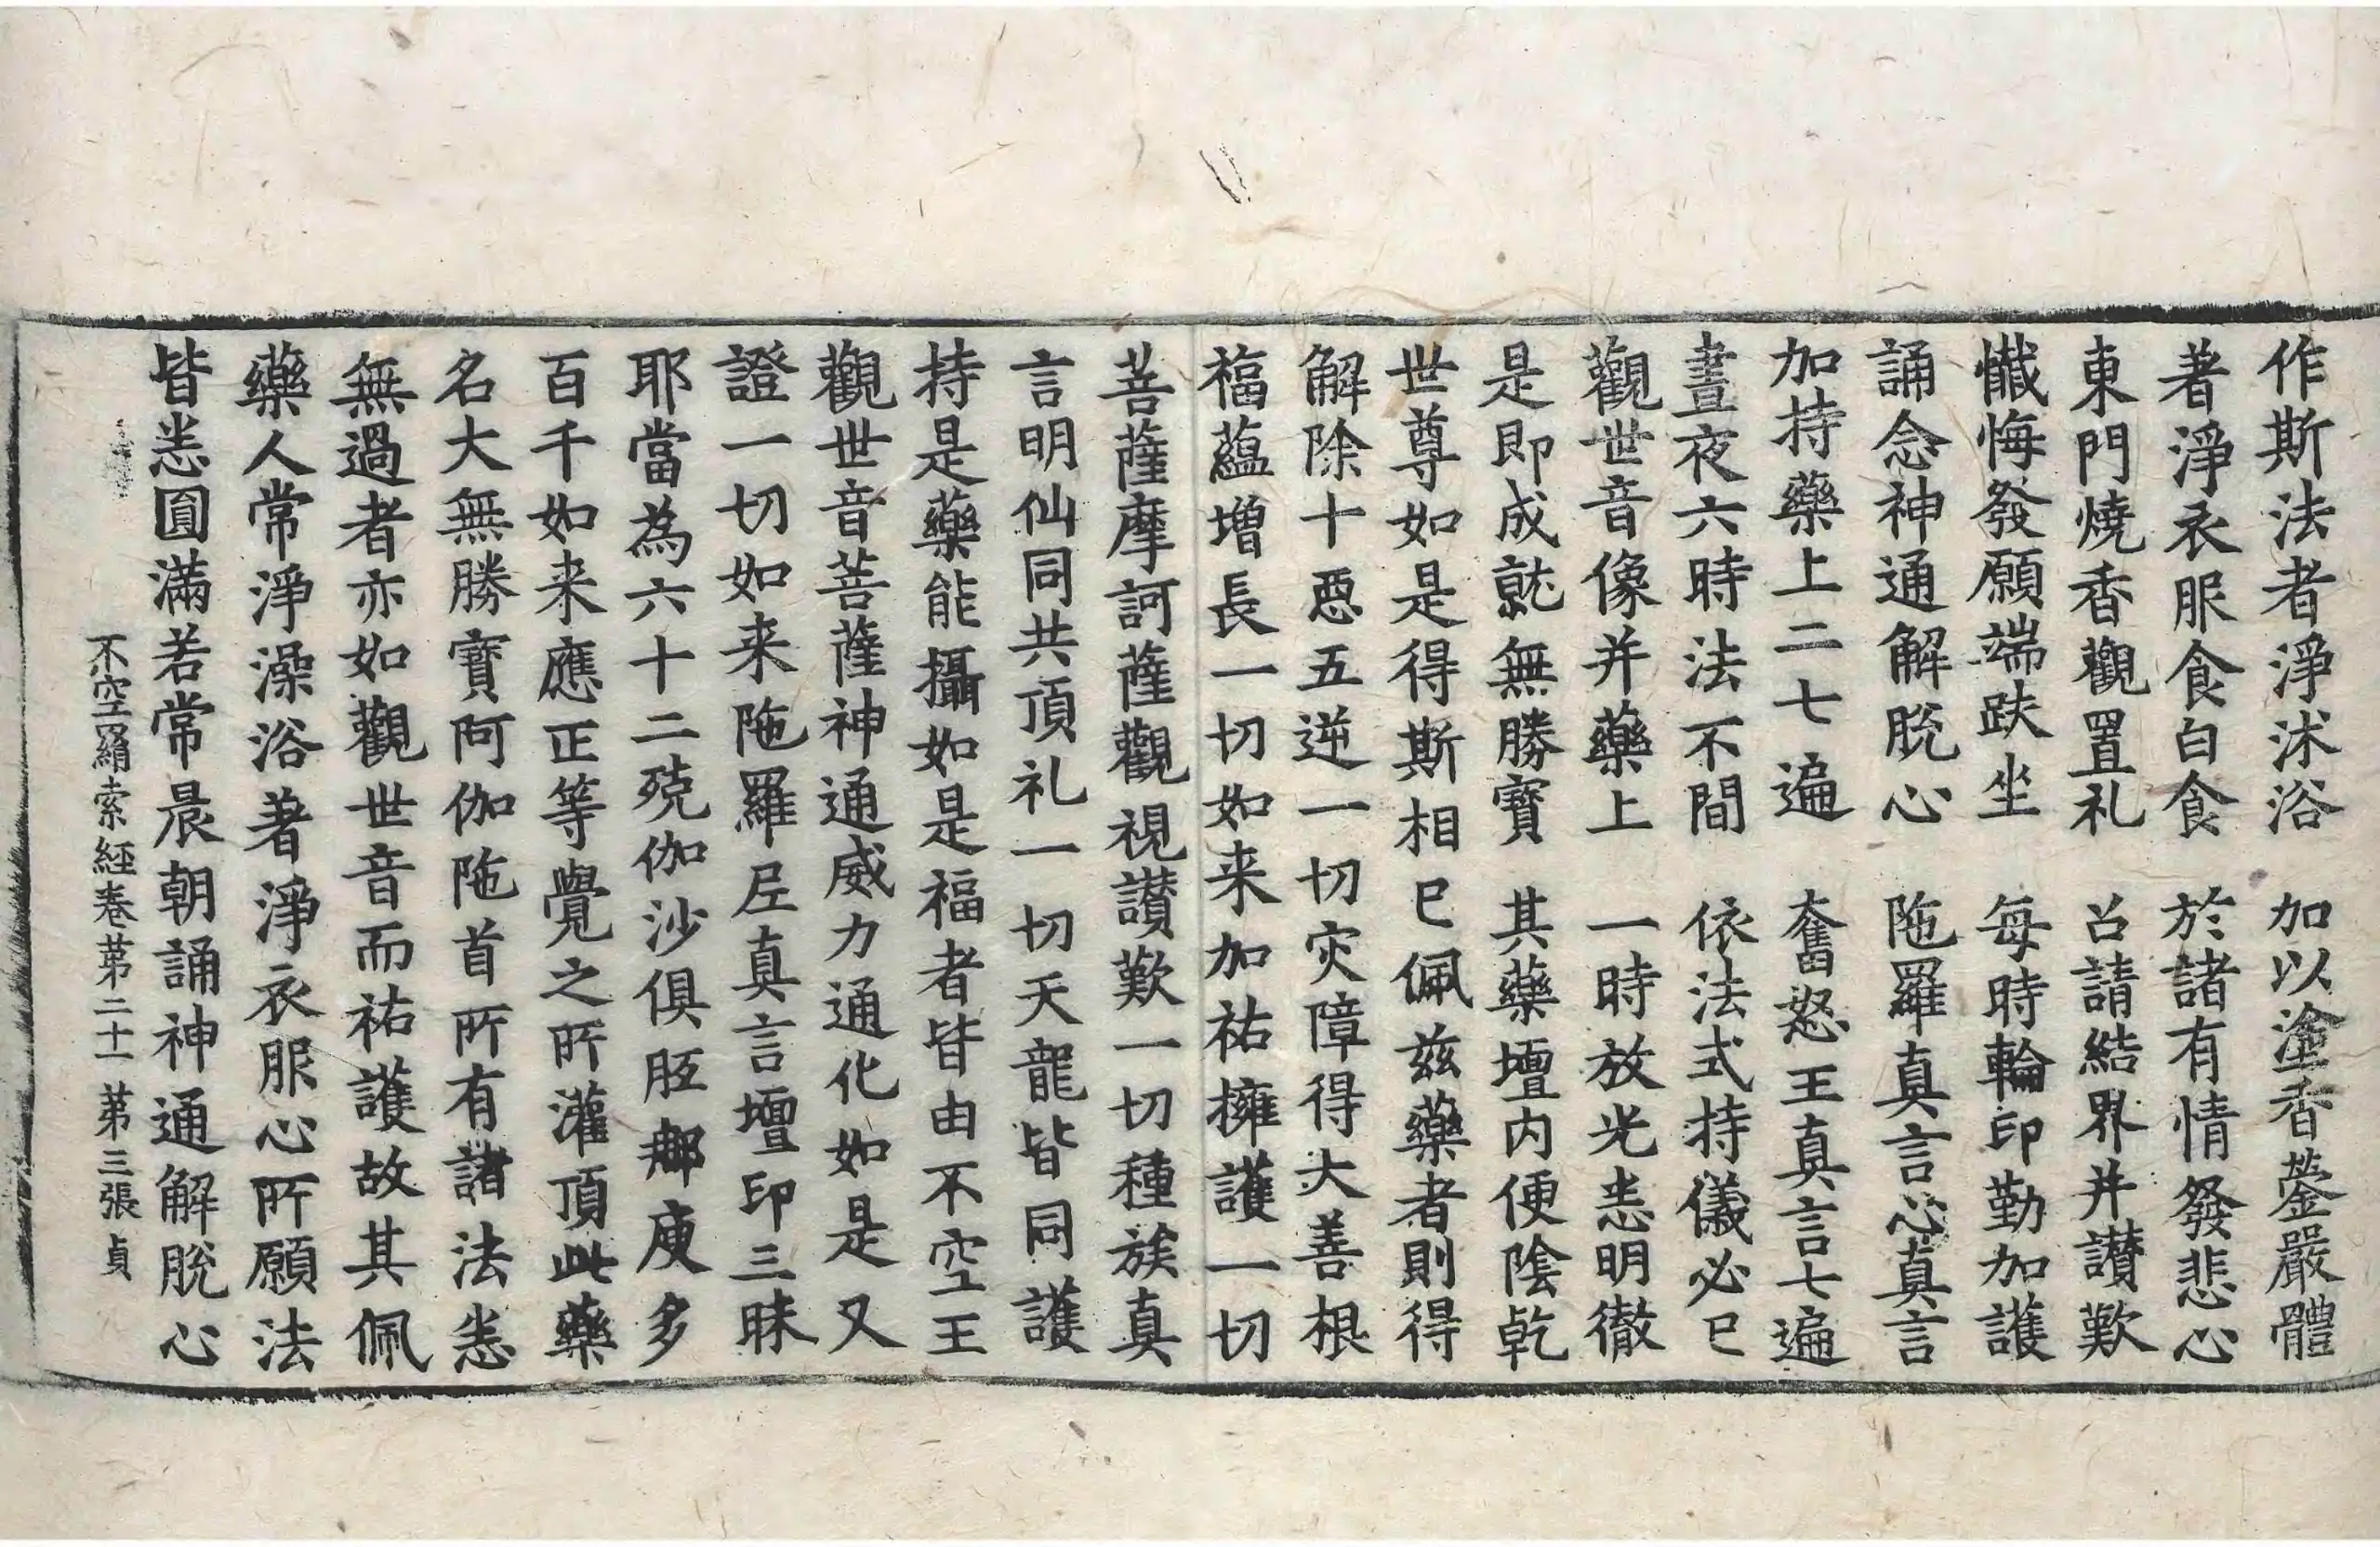 作斯法者淨沐浴　加以塗香鎣嚴體
著淨衣服食白食　於諸有情發悲心
東門燒香觀置礼　召請結界并讃歎
懺悔發願端趺坐　每時輪印勤加護
誦念神通解脫心　陁羅真言心真言
加持藥上二七遍　奮怒王真言七遍
晝夜六時法不間　依法式持儀必已
觀世音像并藥上　一時放光悉明徹
是即成就無勝寶　其藥壇內便陰乾
世尊如是得斯相已佩兹藥者則得
解除十惡五逆一切灾障得大善根
福蘊增長一切如来加祐擁護一切
菩薩摩訶薩觀視讃歎一切種族真
言明仙同共頂礼一切天龍皆同護
持是藥能攝如是福者皆由不空王
觀世音菩薩神通威力通化如是又
證一切如来陁羅尼真言壇印三昧
耶當為六十二殑伽沙俱胝那庾多
百千如来應正等覺之所灌頂此藥
名大無勝寶阿伽陁首所有諸法悉
無過者亦如觀世音而祐護故其佩
藥人常淨澡浴著淨衣服心所願法
皆悉圓滿若常晨朝誦神通解脫心
不空羂索經卷第二十一　第三張　貞